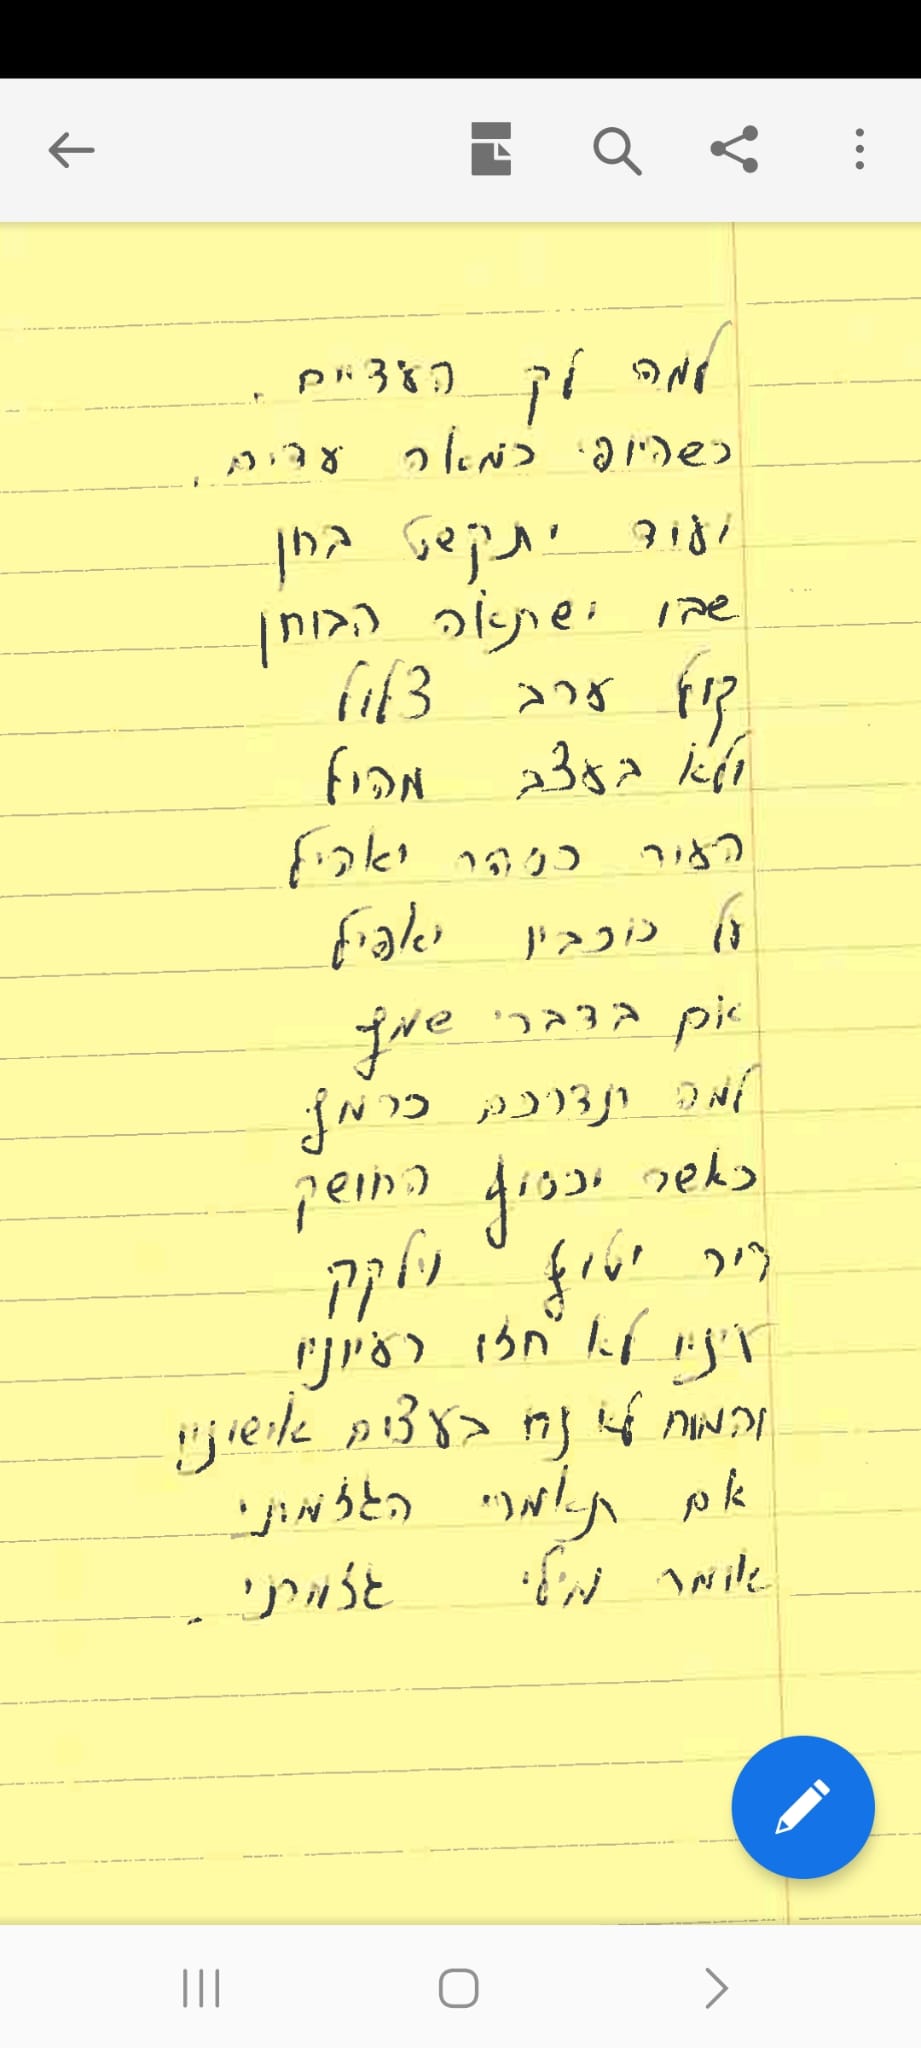 למה לק העדיים.
כשהיופי כמאה עדים.
ועוד יתקשט בחן
שבו ישתאה הבוחן
קול ערב צלול
ולא בעצב מהול
העור כזהר יאהיל
על כוכביו יאפיל
אם בדברי שמץ
למה תדרכם כרמץ
כאשר יכסוף החושק
ריר יטוף וילקק
עיניו לא חזו רעיוניו
והמוח לא נח בעצום אישוניו
אם תאמרי הגזמתי
אומר מילי גזמתי.